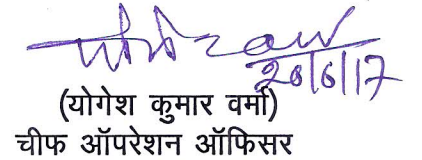 20/6/17
(योगेश कुमार वर्मा)
चीफ ऑपरेशन ऑफिसर